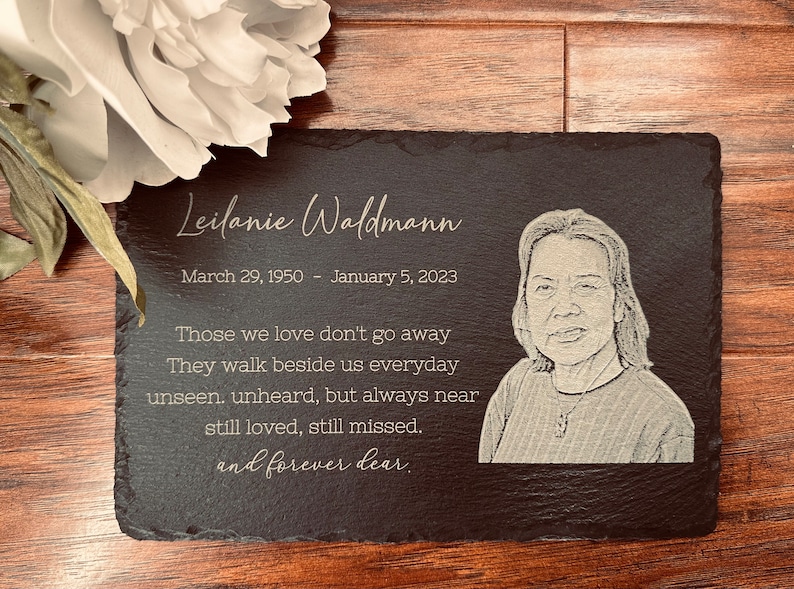 Leilanie Waldmann
March 29, 1950 - January 5, 2023
Those we love don't go away
They walk beside us everyday
unseen. unheard, but always near
still loved, still missed.
and forever dear.